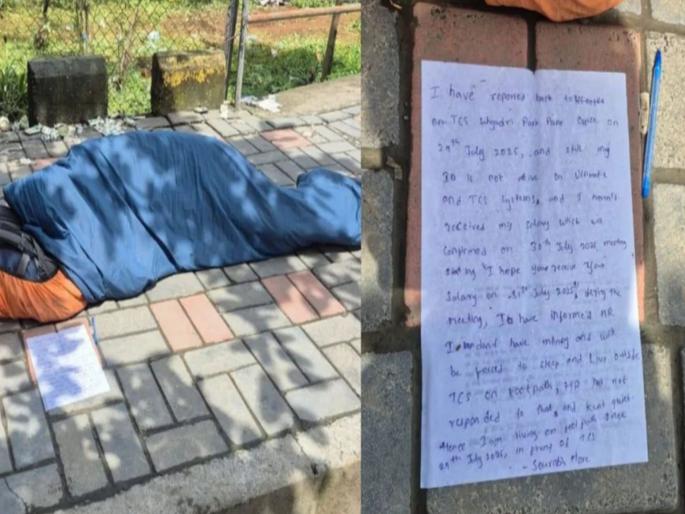 I have reported back to
on TCS Sahyadri Park Pune Office on
29th July 2025, and still my
ID is not alive on Ultimatix
and TCS Systems, and I haven't
received my salary which was
confirmed on 30th July 2025, meeting
"I hope you receive your
Salary on 31st July 2025", during the
meeting, I have informed HR
I don't have money and will
be forced to sleep and live outside
TCS on footpath, HR has not
responded to that, and kept quiet.
Hence I am living on footpath since
29th July 2025, in front of TCS
- Saurabh More